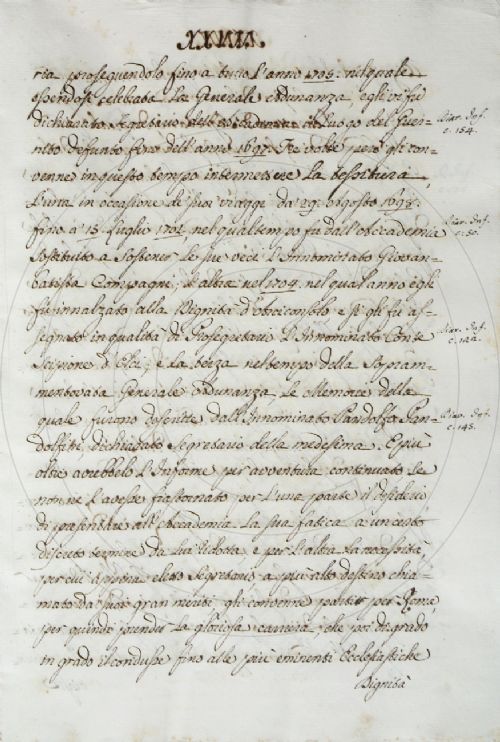 XXVIII.
ria proseguendolo fino a tutto l'anno 1705. nel quale
essendosi celebrata la Generale Adunanza, egli vi fu
dichiarato Segretario dell'Accademia in luogo del Guer-
Diar. Inf.
c. 154.
defunto fino dell'anno 1691. Tre volte però gli con-
venne in questo tempo intermettere la tessitura
L'una in occasione de' suoi viaggi da 29. Agosto 1698.
fino a 15. Luglio 1701. nel qual tempo fu dall'Accademia
Diar. Inf.
c. 50.
sostituito a sostener le sue veci l'Innominato Giovan-
batista Compagni; l'altra nel 1704. nel qual anno egli
fu innalzato alla Dignità d'Arciconsolo e gli fu as-
segnato in qualità di Prosegretario l'Innominato Conte
Diar. Inf.
c. 142.
Scipione d'Elci; e la terza nel tempo della sopram-
mentovata Generale Adunanza, le Memorie della
quale furono descritte dall'Innominato Pandolfo Pan-
Diar. Inf.
c. 145.
dolfini, dichiarato Segretario della medesima. E più
oltre avrebbelo l'Infame per avventura continuato se
non ne l'avesse frastornato per l'una parte il desiderio
di presentare all'Accademia la sua fatica a un certo
discreto termine da lui ridotta, e per l'altra la necessità,
per cui appena eletto Segretario a più alto destino chia-
mato da' suoi gran meriti gli convenne partir per Roma
per quindi prender la gloriosa carriera, che poi di grado
in grado il condusse fino alle più eminenti Ecclesiastiche
Dignità